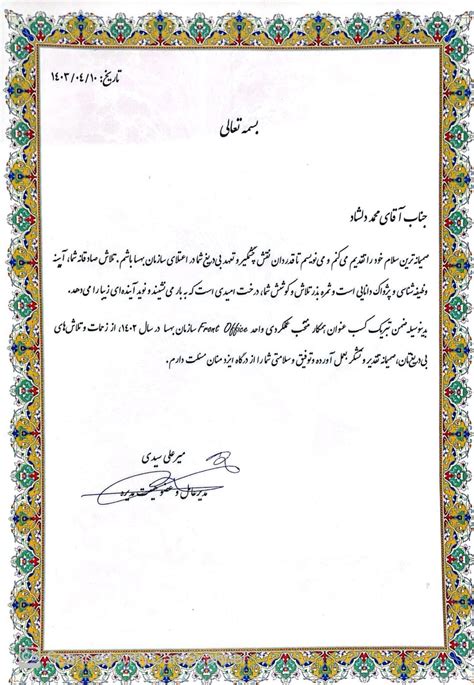 تاریخ: ۱۴۰۳/۰۴/۱۰
بسمه تعالی
جناب آقای محمد دلشاد
صمیمانه‌ترین سلام خود را تقدیم می‌کنم و می‌نویسم تا قدردان نقش چشمگیر و تعهد بی‌دریغ شما در اعتلای سازمان بهسا باشم. تلاش صادقانه شما، آیینه
وظیفه‌شناسی و پژواک دانایی است و ثمره بذر تلاش و کوشش شما، درخت امیدی است که به بار می‌نشیند و نوید آینده‌ای زیبا را می‌دهد.
بدینوسیله ضمن تبریک کسب عنوان همکار منتخب عملکردی واحد Front Office سازمان بهسا در سال ۱۴۰۲، از زحمات و تلاش‌های
بی‌دریغتان، صمیمانه تقدیر و تشکر بعمل آورده و توفیق و سلامتی شما را از درگاه ایزد منان مسئلت دارم.
میرعلی سیدی
مدیرعامل و عضو هیئت مدیره